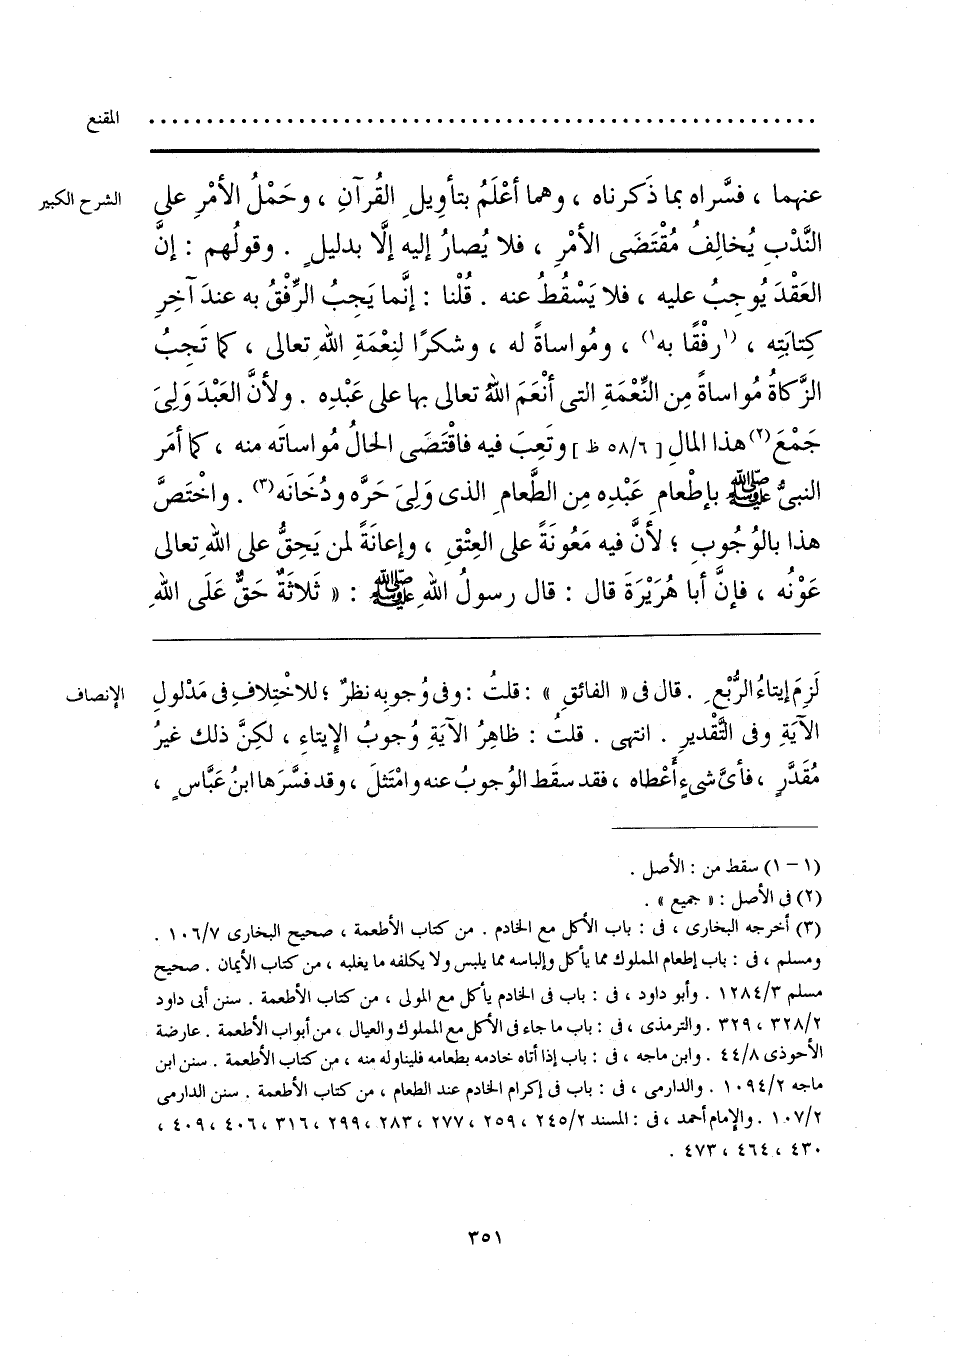 المقنع ......................................................
الشرح الكبير
عنهما ، فسَّراه بما ذَكرناه ، وهما أعْلَمُ بتأويلِ القُرآنِ ، وحَمْلُ الأمْرِ على
النَّدْبِ يُخالِفُ مُقْتَضَى الأمْرِ ، فلا يُصارُ إليه إلَّا بدليلٍ . وقولُهم : إنَّ
العَقْدَ يُوجِبُ عليه ، فلا يَسْقُطُ عنه . قُلْنا : إنَّما يَجِبُ الرِّفْقُ به عندَ آخِرِ
كِتابَتِه ، (١رِفْقًا به١) ، ومُواساةً له ، وشكرًا لنِعْمَةِ اللهِ تعالى ، كما تَجِبُ
الزَّكاةُ مُواساةً مِن النِّعْمَةِ التى أنْعَمَ اللهُ تعالى بها على عَبْدِه . ولأنَّ العَبْدَ وَلِىَ
جَمْعَ(٢) هذا المالِ [ ٥٨/٦ ظ ] وتَعِبَ فيه فاقْتَضَى الحالُ مُواساتَه منه ، كما أمَر
النبىُّ ﷺ بإطْعامِ عَبْدِه مِن الطَّعامِ الذى وَلِىَ حَرَّه ودُخَانَه(٣) . واخْتَصَّ
هذا بالوُجُوبِ ؛ لأنَّ فيه مَعُونَةً على العِتْقِ ، وإعانَةً لمن يَحِقُّ على اللهِ تعالى
عَوْنُه ، فإنَّ أبا هُرَيْرَةَ قال : قال رسولُ اللهِ ﷺ : « ثَلاثَةٌ حَقٌّ عَلَى اللهِ
الإنصاف
لَزِمَ إيتاءُ الرُّبْعِ . قال فى « الفائقِ » : قلتُ : وفى وُجوبِه نظرٌ ؛ للاخْتِلافِ فى مَدْلولِ
الآيَةِ وفى التَّقْديرِ . انتهى . قلتُ : ظاهِرُ الآيَةِ وُجوبُ الإيتاءِ ، لكِنَّ ذلك غيرُ
مُقَدَّرٍ ، فأىَّ شىءٍ أَعْطاه ، فقد سقَط الوُجوبُ عنه وامْتَثلَ ، وقد فسَّرَها ابنُ عَبَّاسٍ ،
(١ – ١) سقط من : الأصل .
(٢) فى الأصل : « جميع » .
(٣) أخرجه البخارى ، فى : باب الأكل مع الخادم . من كتاب الأطعمة ، صحيح البخارى ١٠٦/٧ .
ومسلم ، فى : باب إطعام المملوك مما يأكل وإلباسه مما يلبس ولا يكلفه ما يغلبه ، من كتاب الأيمان . صحيح
مسلم ١٢٨٤/٣ . وأبو داود ، فى : باب فى الخادم يأكل مع المولى ، من كتاب الأطعمة . سنن أبى داود
٣٢٨/٢ ، ٣٢٩ . والترمذى ، فى : باب ما جاء فى الأكل مع المملوك والعيال ، من أبواب الأطعمة . عارضة
الأحوذى ٤٤/٨ . وابن ماجه ، فى : باب إذا أتاه خادمه بطعامه فليناوله منه ، من كتاب الأطعمة . سنن ابن
ماجه ١٠٩٤/٢ . والدارمى ، فى : باب فى إكرام الخادم عند الطعام ، من كتاب الأطعمة . سنن الدارمى
١٠٧/٢ . والإمام أحمد ، فى : المسند ٢٤٥/٢ ، ٢٥٩ ، ٢٧٧ ، ٢٨٣ ، ٢٩٩ ، ٣١٦ ، ٤٠٦ ، ٤٠٩ ،
٤٣٠ ، ٤٦٤ ، ٤٧٣ .
٣٥١